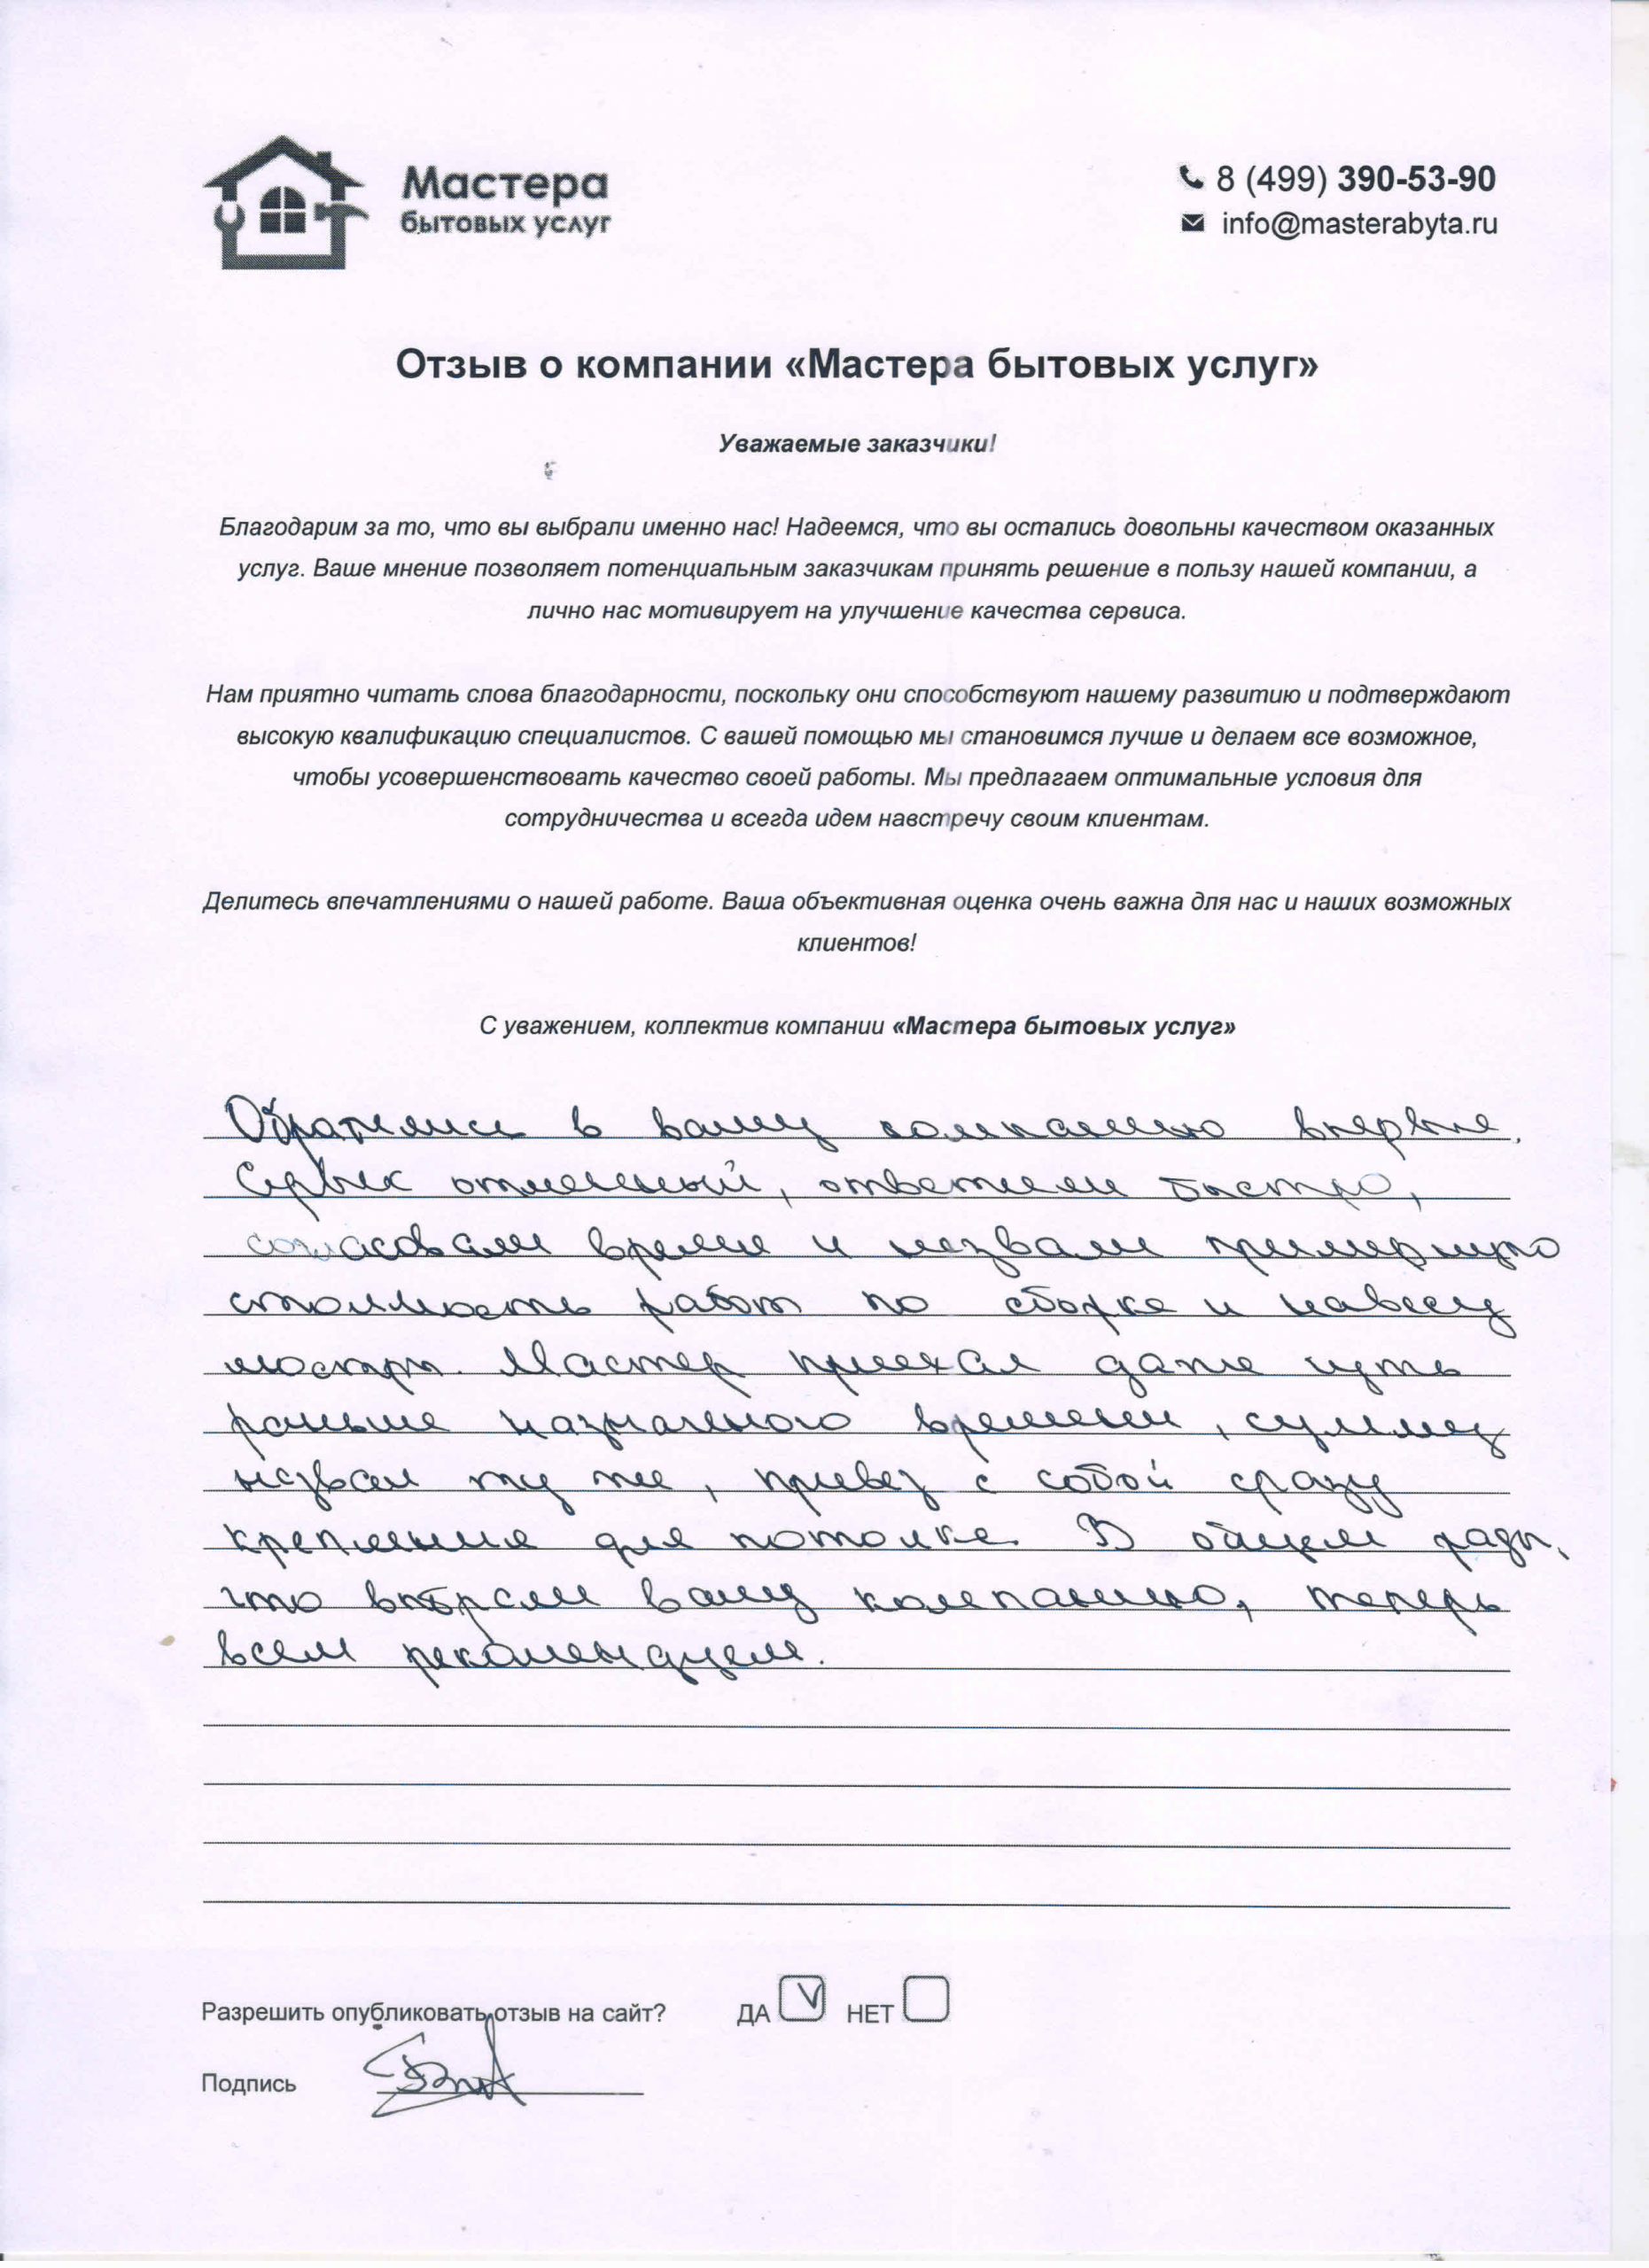 Мастера
бытовых услуг
8 (499) 390-53-90
info@masterabyta.ru
Отзыв о компании «Мастера бытовых услуг»
Уважаемые заказчики!
Благодарим за то, что вы выбрали именно нас! Надеемся, что вы остались довольны качеством оказанных
услуг. Ваше мнение позволяет потенциальным заказчикам принять решение в пользу нашей компании, а
лично нас мотивирует на улучшение качества сервиса.
Нам приятно читать слова благодарности, поскольку они способствуют нашему развитию и подтверждают
высокую квалификацию специалистов. С вашей помощью мы становимся лучше и делаем все возможное,
чтобы усовершенствовать качество своей работы. Мы предлагаем оптимальные условия для
сотрудничества и всегда идем навстречу своим клиентам.
Делитесь впечатлениями о нашей работе. Ваша объективная оценка очень важна для нас и наших возможных
клиентов!
С уважением, коллектив компании «Мастера бытовых услуг»
Обратились в вашу компанию впервые.
Сервис отменный, ответили быстро,
согласовали время и назвали примерную
стоимость работ по сборке и навесу
люстры. Мастер приехал даже чуть
раньше назначеного времени, сумму
назвал ту же, привез с собой сразу
крепления для потолка. В общем рады,
что выбрали вашу компанию, теперь
всем рекомендуем.
Разрешить опубликовать отзыв на сайт? ДА НЕТ
Подпись